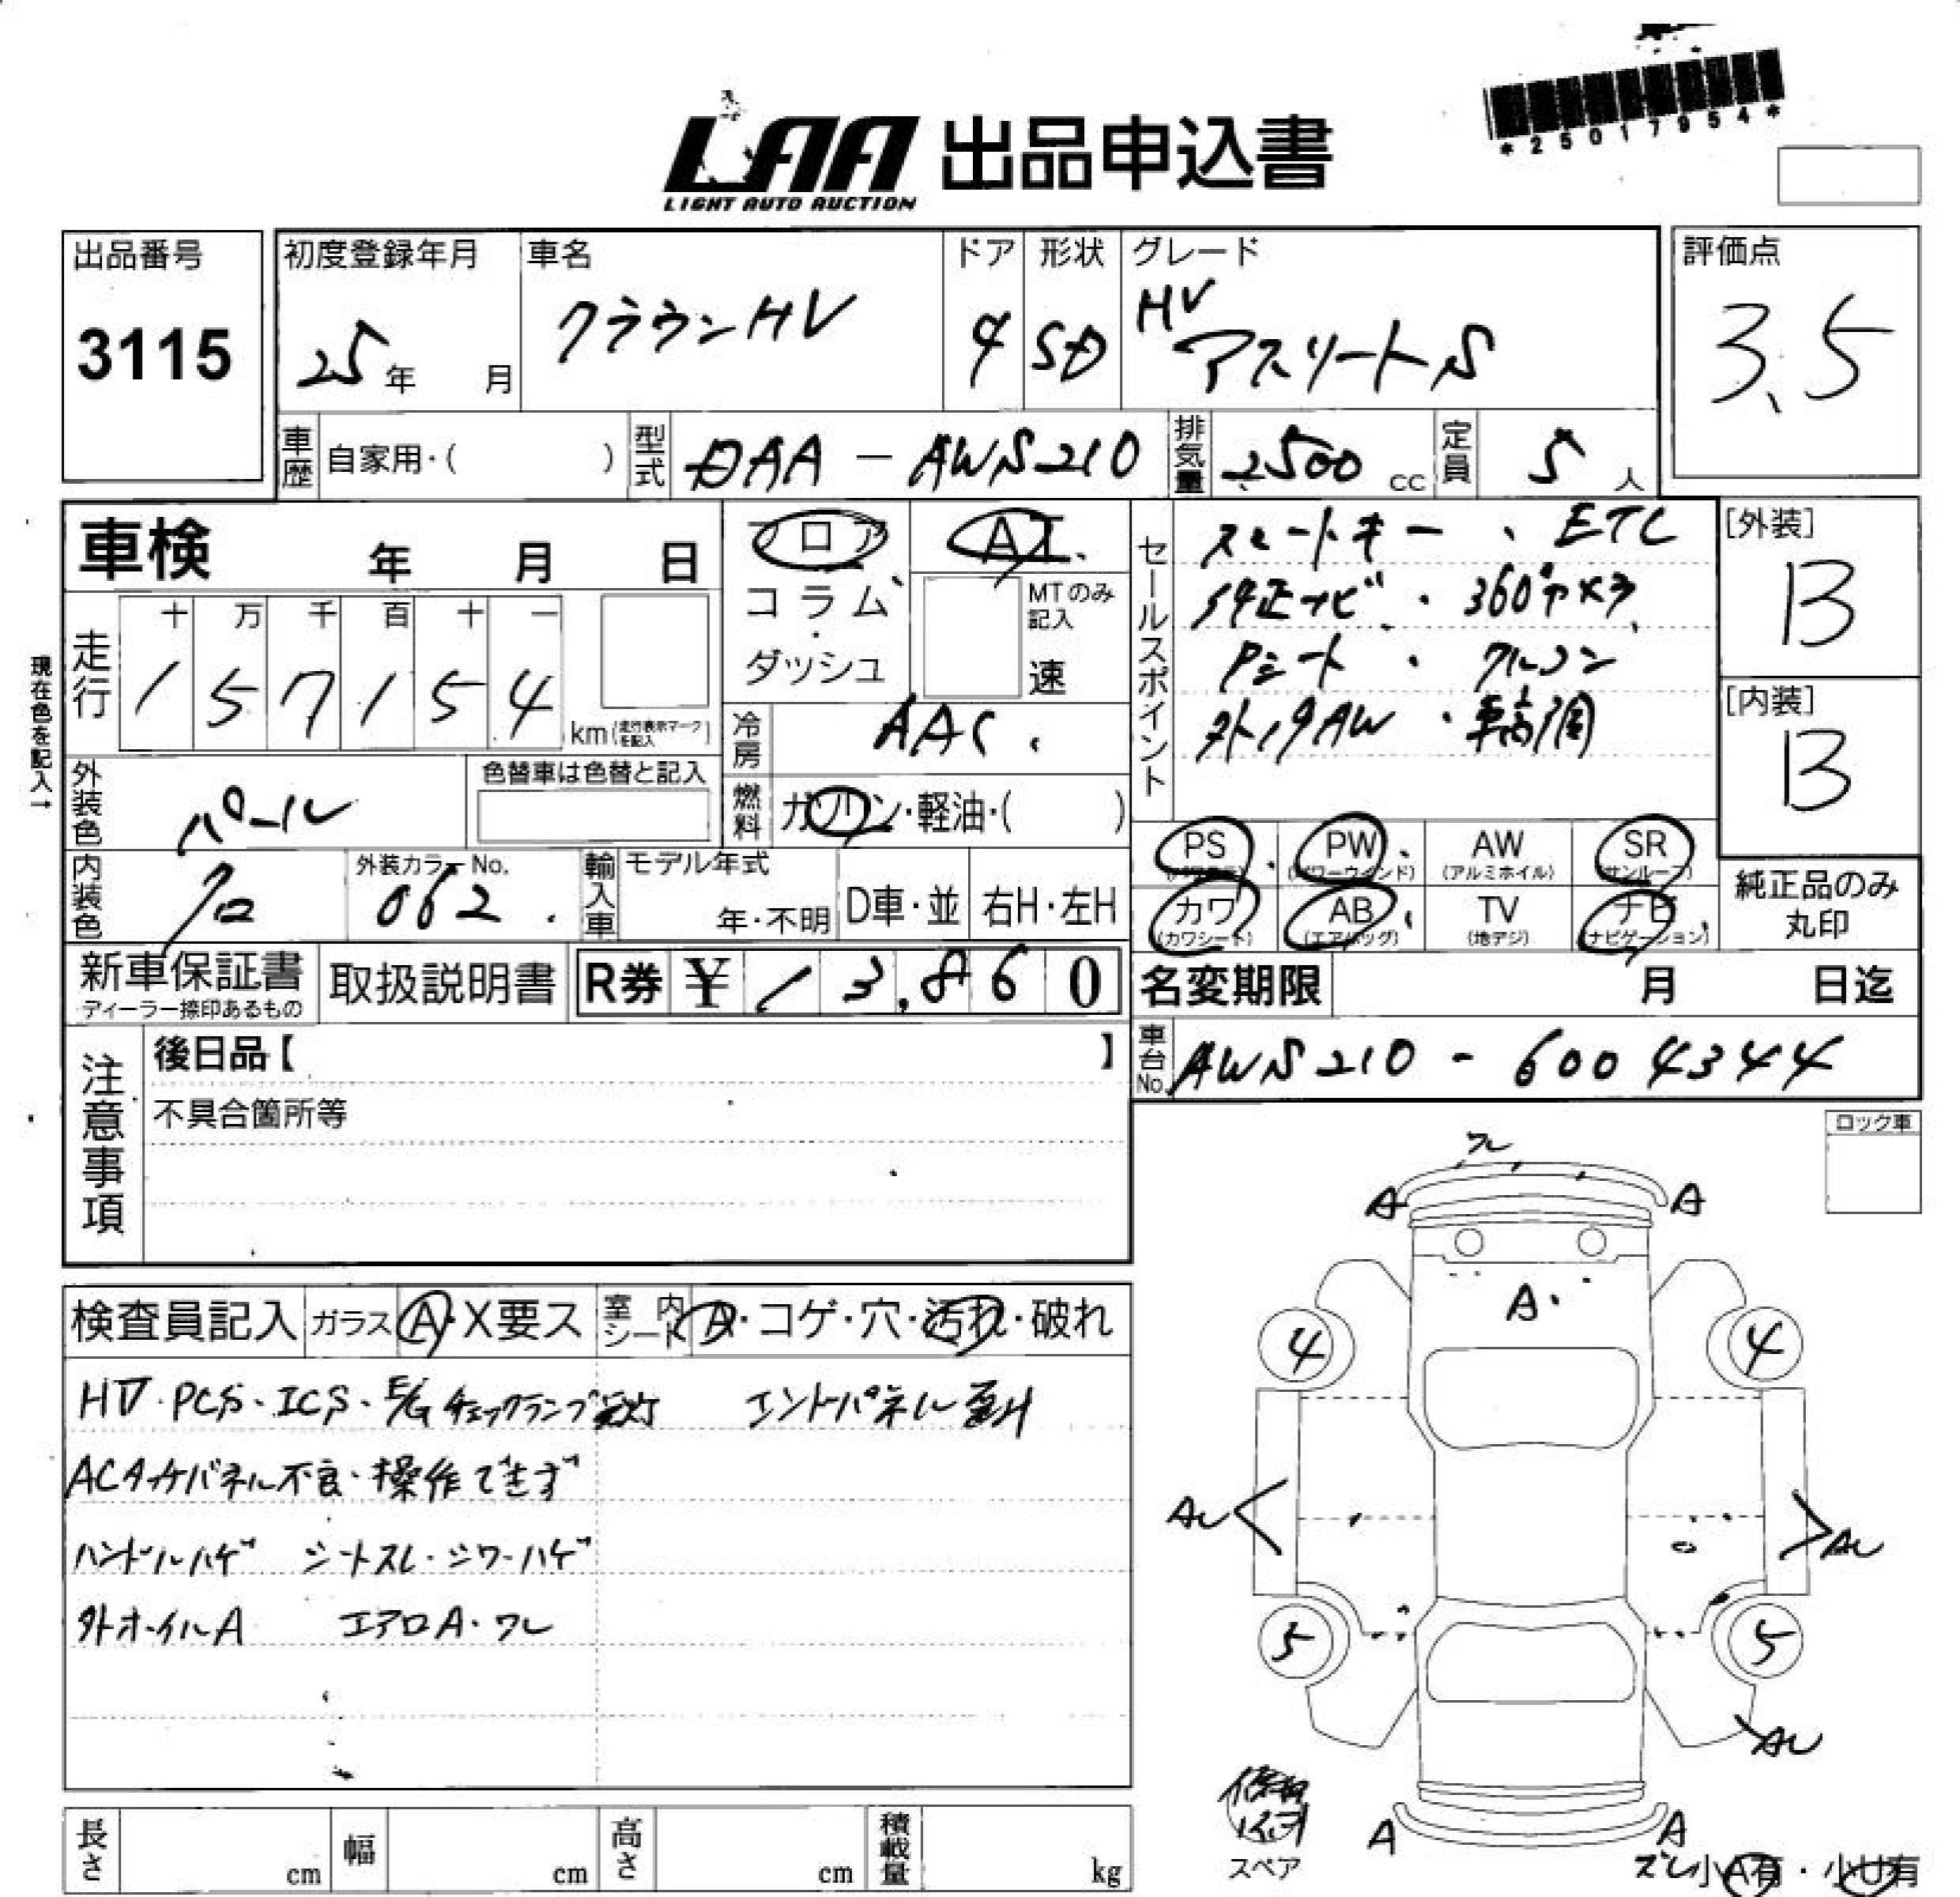 *25017954*
LAA 出品申込書
LIGHT AUTO AUCTION
出品番号 3115
初度登録年月 25年 月
車名 クラウンHV
ドア 4
形状 SD
グレード HV アスリートS
評価点 3.5
車歴 自家用・( )
型式 DAA-AWS210
排気量 2500 cc
定員 5 人
車検 年 月 日
フロア
コラム
・
ダッシュ
AT
MTのみ記入
速
セールスポイント
スマートキー、ETC
純正ナビ・360°カメラ
Pシート・クルコン
外19AW・車高調
[外装] B
[内装] B
現在色を記入→
走行 十 万 千 百 十 一
1 5 7 1 5 4 km(走行表示マークを記入)
冷房 AAC
外装色 パール
色替車は色替と記入
燃料 ガソリン・軽油・( )
PS (パワステ) PW (パワーウインド) AW (アルミホイル) SR (サンルーフ)
カワ (カワシート) AB (エアバッグ) TV (地デジ) ナビ (ナビゲーション)
純正品のみ
丸印
内装色 クロ
外装カラーNo. 062
輸入車 モデル年式 年・不明 D車・並 右H・左H
新車保証書
ディーラー捺印あるもの
取扱説明書
R券 ¥ 13,860
名変期限 月 日迄
車台No. AWS210-6004344
注意事項
後日品【 】
不具合箇所等
ロック車
検査員記入 ガラス A・X要ス 室内シート A・コゲ・穴・汚れ・破れ
HV・PCS・ICS・E/Gチェックランプ点灯 エンドパネル
ACタッチパネル不良・操作できず
ハンドルハゲ シートスレ・シワ・ハゲ
外ホイルA エアロA・ワレ
ワレ
A A
A
4 4
AU AU
5 5
AU
A A
スペア
ズレ小A有・小U有
長さ cm 幅 cm 高さ cm 積載量 kg